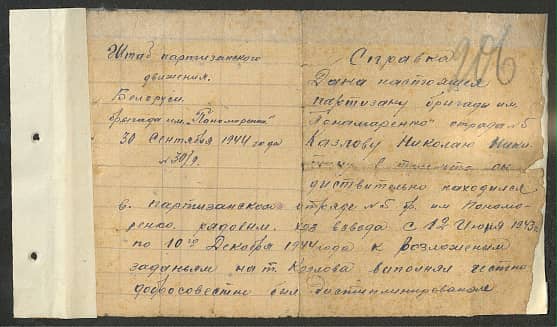 Штаб партизанского
движения.
Белоруси.
бригада им. "Пономоренко"
30 Сентября 1944 года
Справка
206
Дана настоящея
партизану бригады им.
"Пономаренко" отряда №5
Казлову Николаю
в том что он
диствительно находился
в партизанском отряде №5 бр. им. Пономо-
ренко рядовым. хоз взвода с 12 Июня 1943г
по 10го Декабря 1944 года к возложеным
заданьям на т. Козлова выполнял честно
добросовестно был дистиплинированом